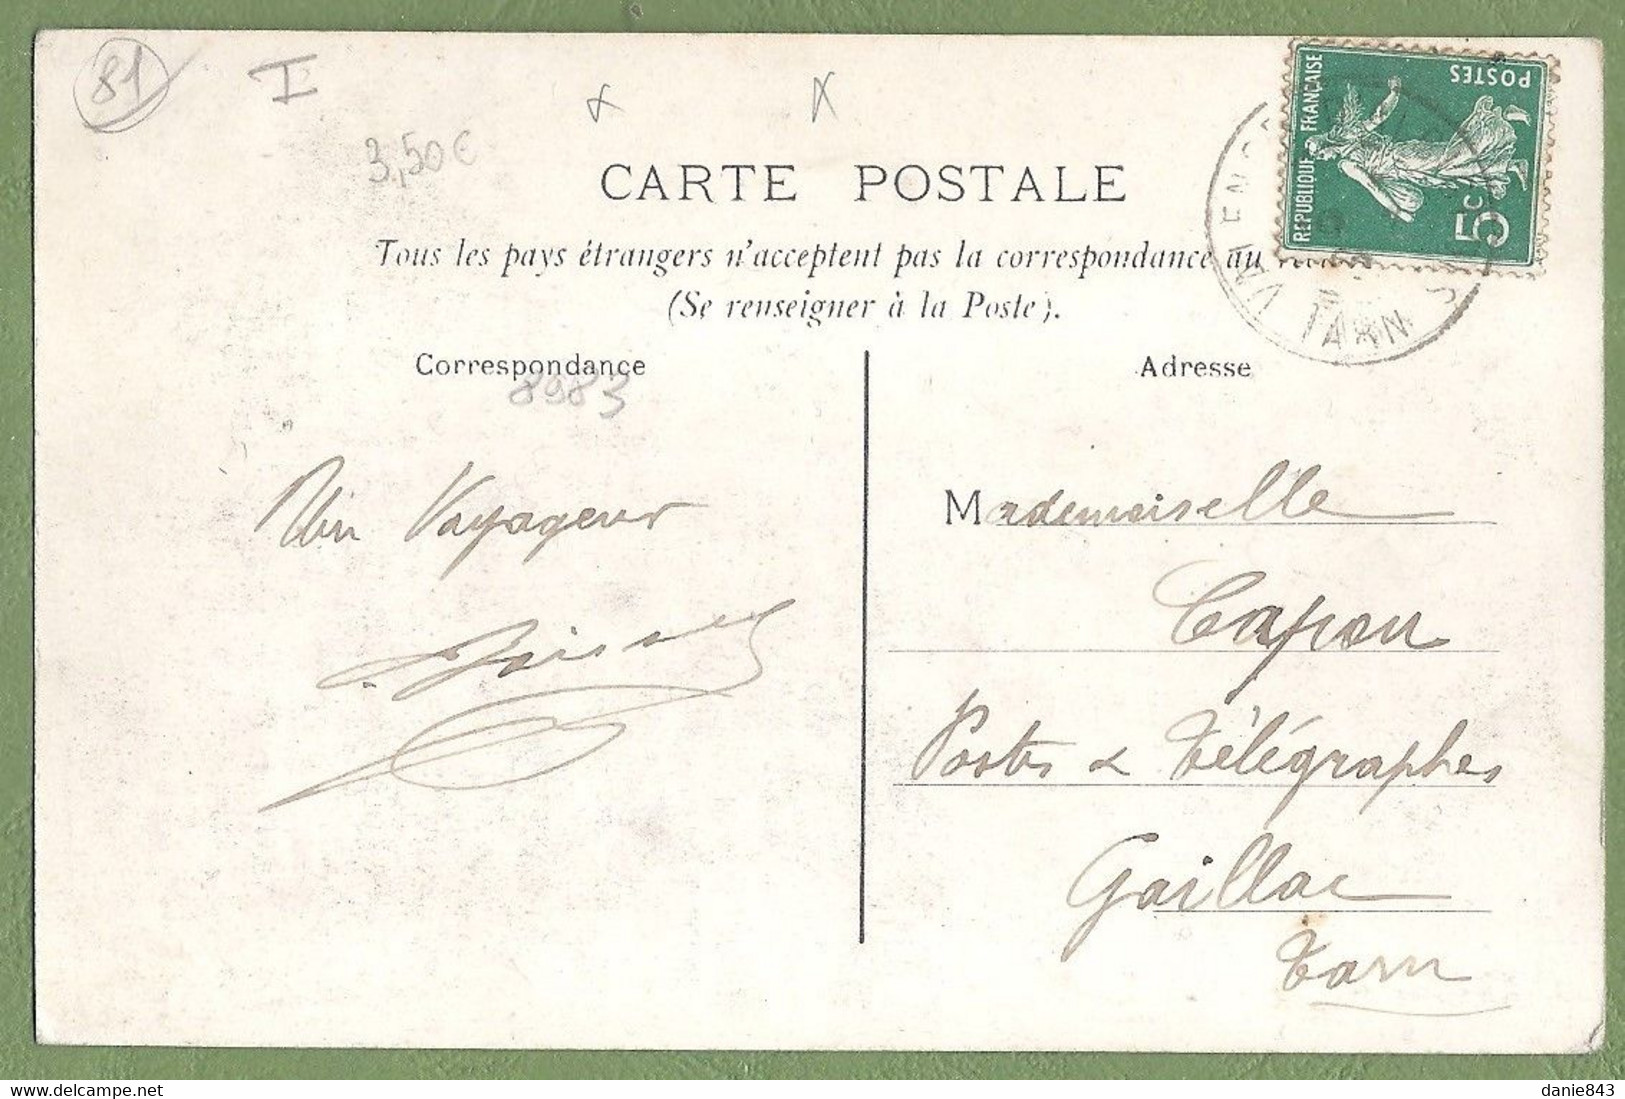 81
I
3,50€
CARTE POSTALE
Tous les pays étrangers n'acceptent pas la correspondance au
(Se renseigner à la Poste).
REPUBLIQUE FRANÇAISE
POSTES
5c
TARN
Correspondance
8983
Adresse
Un Voyageur
Mademoiselle
Capou
Postes & Télégraphes
Gaillac
Tarn
danie843